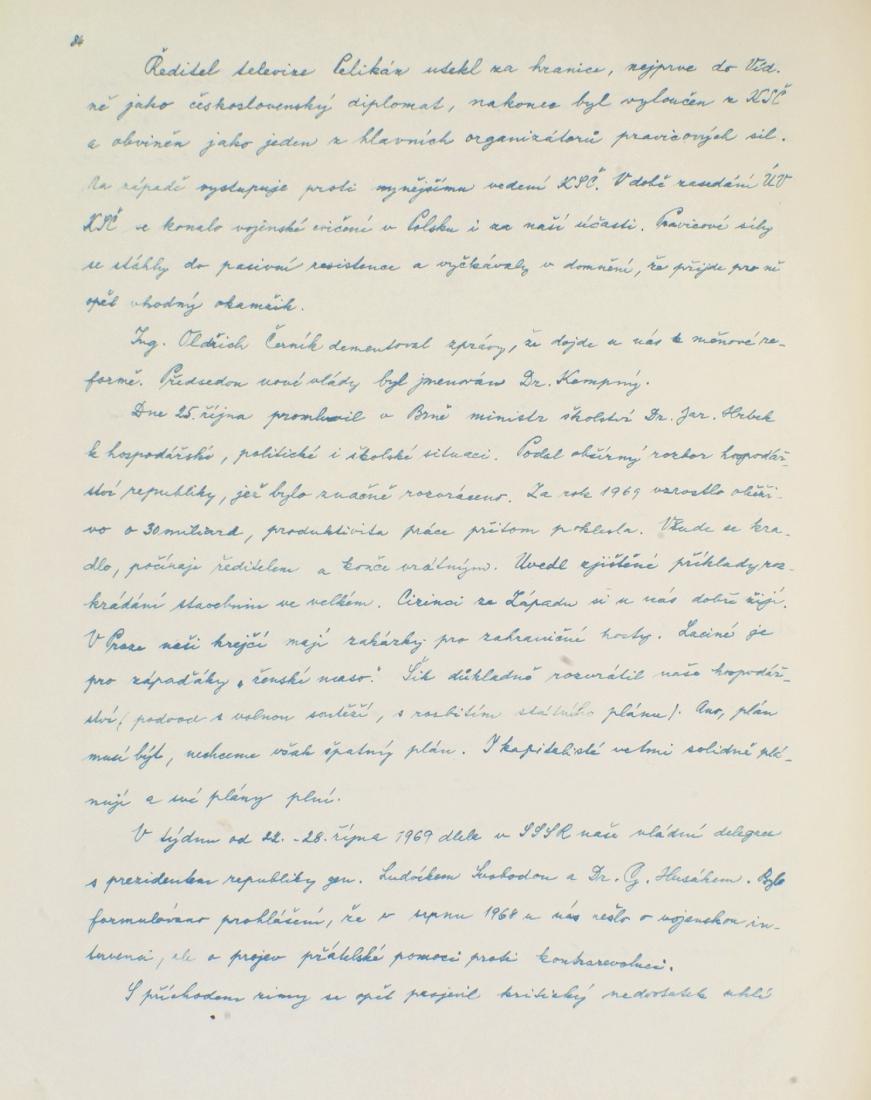 84
Ředitel televize Pelikán utekl za hranice, nejprve do Víd-
ně jako československý diplomat, nakonec byl vyloučen z KSČ
a obviněn jako jeden z hlavních organizátorů pravicových sil.
Na západě vystupuje proti nynějšímu vedení KSČ. V době zasedání ÚV
KSČ se konalo vojenské cvičení v Polsku i za naší účasti. Pravicové síly
se stáhly do pasivní resistence a vyčkávaly v domnění, že přijde pro ně
opět vhodný okamžik.
Ing. Oldřich Černík dementoval zprávy, že dojde u nás k měnové re-
formě. Předsedou nové vlády byl jmenován Dr. Kempný.
Dne 25. října promluvil v Brně ministr školství Dr. Jar. Hrbek
k hospodářské, politické i školské situaci. Podal obšírný rozbor hospodář-
ství republiky, jež bylo značně rozvráceno. Za rok 1969 vzrostlo oběži-
vo o 30 miliard, produktivita práce přitom poklesla. Všude se kra-
dlo, počínaje ředitelem a konče vrátným. Uvedl zjištěné příklady roz-
krádání stavebnin ve velkém. Cizinci ze Západu si u nás dobře žijí.
V Praze naši krejčí mají zakázky pro zahraniční hosty. Laciné je
pro západáky „ženské maso." Šik důkladně rozvrátil naše hospodář-
ství (podvod s volnou soutěží, s rozbitím státního plánu). Ano, plán
musí být, nechceme však špatný plán. I kapitalisté velmi solidně plá-
nují a své plány plní.
V týdnu od 22. - 28. října 1969 dlela v SSSR naše vládní delegace
s prezidentem republiky gen. Ludvíkem Svobodou a Dr. G. Husákem. Bylo
formulováno prohlášení, že v srpnu 1968 u nás nešlo o vojenskou in-
tervenci, ale o projev přátelské pomoci proti kontrarevoluci.
S příchodem zimy se opět projevil kritický nedostatek uhlí